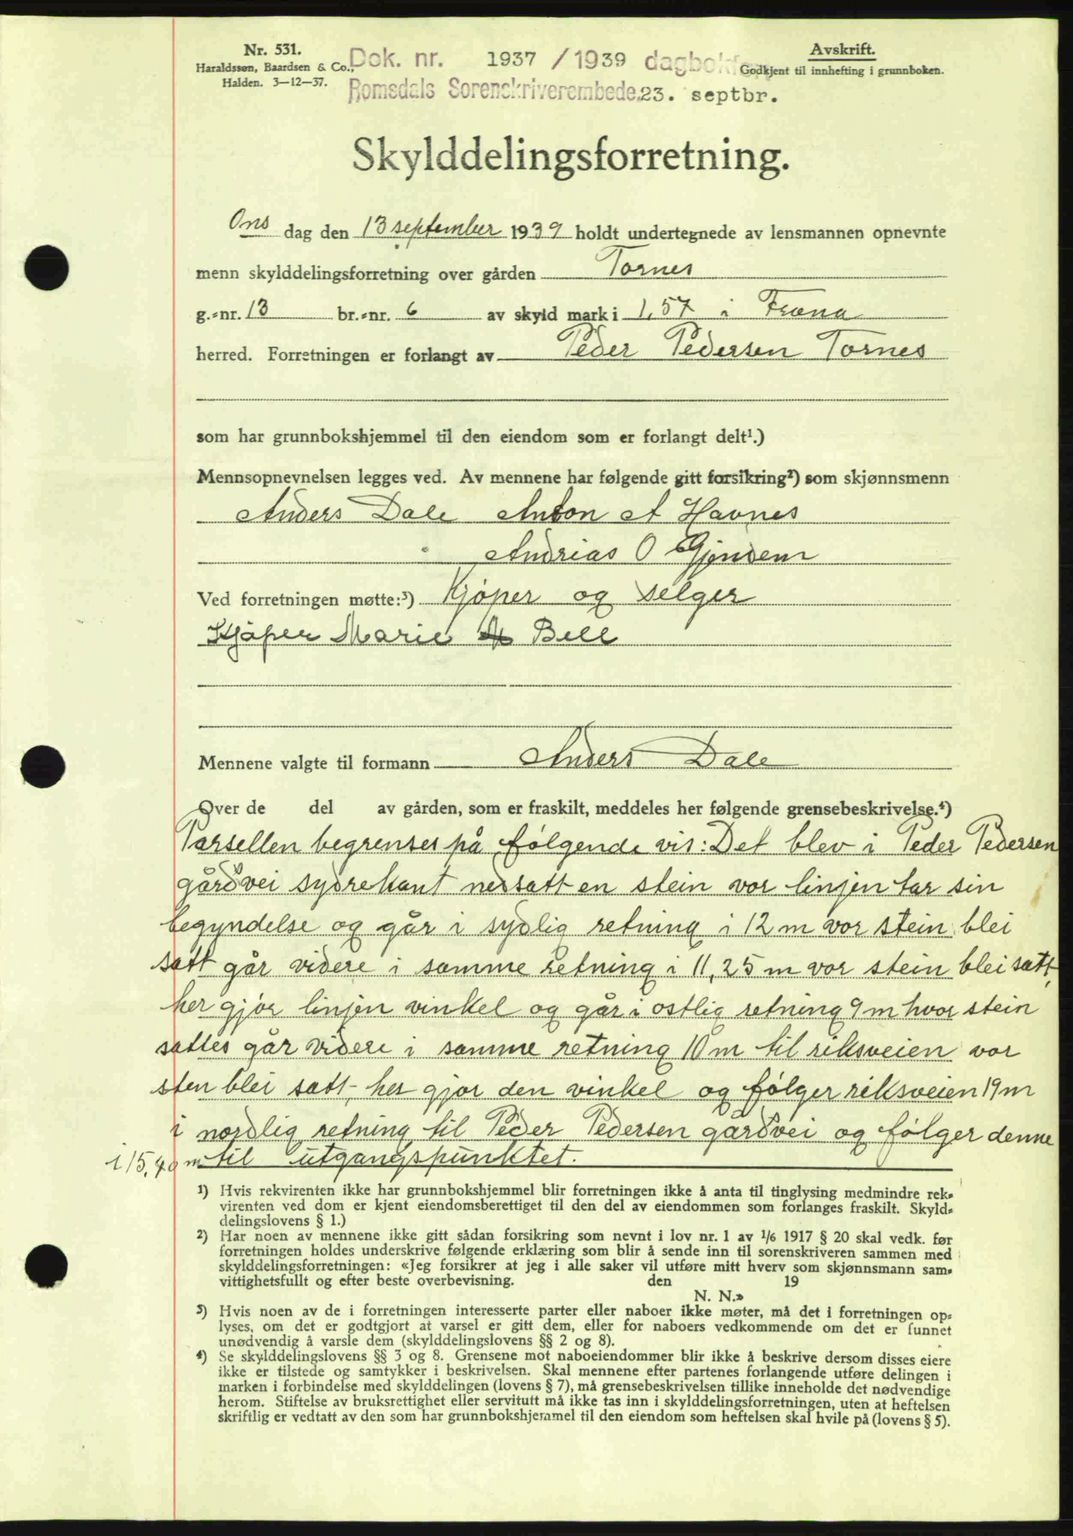 Nr. 531.
Haraldssøn, Baardsen & Co.,
Halden. 3—12—37.
Dok. nr. 1937 / 1939 dagbok
Romsdals Sorenskriverembede. 23. septbr.
Avskrift.
Godkjent til innhefting i grunnboken.
Skylddelingsforretning.
Ons dag den 13 september 1939 holdt undertegnede av lensmannen opnevnte
menn skylddelingsforretning over gården Tornes
g.-nr. 13 br.-nr. 6 av skyld mark i 1,57 i Fræna
herred. Forretningen er forlangt av Peder Pedersen Tornes
som har grunnbokshjemmel til den eiendom som er forlangt delt¹.)
Mennsopnevnelsen legges ved. Av mennene har følgende gitt forsikring²) som skjønnsmenn
Anders Dale Anton A Havnes
Andrias O Gjendem
Ved forretningen møtte:³) Kjøper og selger
Kjøper Marie Bell
Mennene valgte til formann Anders Dale
Over de del av gården, som er fraskilt, meddeles her følgende grensebeskrivelse.⁴)
Parsellen begrenses på følgende vis: Det blev i Peder Pedersen
gårdvei sydrekant nedsatt en stein vor linjen tar sin
begyndelse og går i sydlig retning i 12 m vor stein blei
satt går videre i samme retning i 11,25 m vor stein blei satt,
her gjør linjen vinkel og går i østlig retning 9 m hvor stein
sattes går videre i samme retning 10 m til riksveien vor
sten blei satt, her gjør den vinkel og følger riksveien 19 m
i nordlig retning til Peder Pedersen gårdvei og følger denne
i 15,40 m til utgangspunktet.
¹) Hvis rekvirenten ikke har grunnbokshjemmel blir forretningen ikke å anta til tinglysing medmindre rek-
virenten ved dom er kjent eiendomsberettiget til den del av eiendommen som forlanges fraskilt. Skyld-
delingslovens § 1.)
²) Har noen av mennene ikke gitt sådan forsikring som nevnt i lov nr. 1 av ¹/₆ 1917 § 20 skal vedk. før
forretningen holdes underskrive følgende erklæring som blir å sende inn til sorenskriveren sammen med
skylddelingsforretningen: «Jeg forsikrer at jeg i alle saker vil utføre mitt hverv som skjønnsmann sam-
vittighetsfullt og efter beste overbevisning. den 19
N. N.»
³) Hvis noen av de i forretningen interesserte parter eller naboer ikke møter, må det i forretningen op-
lyses, om det er godtgjort at varsel er gitt dem, eller for naboers vedkommende om det er funnet
unødvendig å varsle dem (skylddelingslovens §§ 2 og 8).
⁴) Se skylddelingslovens §§ 3 og 8. Grensene mot naboeiendommer blir ikke å beskrive dersom disses eiere
ikke er tilstede og samtykker i beskrivelsen. Skal mennene efter partenes forlangende utføre delingen i
marken i forbindelse med skylddelingen (lovens § 7), må grensebeskrivelsen tillike inneholde det nødvendige
herom. Stiftelse av bruksrettighet eller servitutt må ikke tas inn i skylddelingsforretningen, uten at heftelsen
skriftlig er vedtatt av den som har grunnbokshjemmel til den eiendom som heftelsen skal hvile på (lovens § 5).